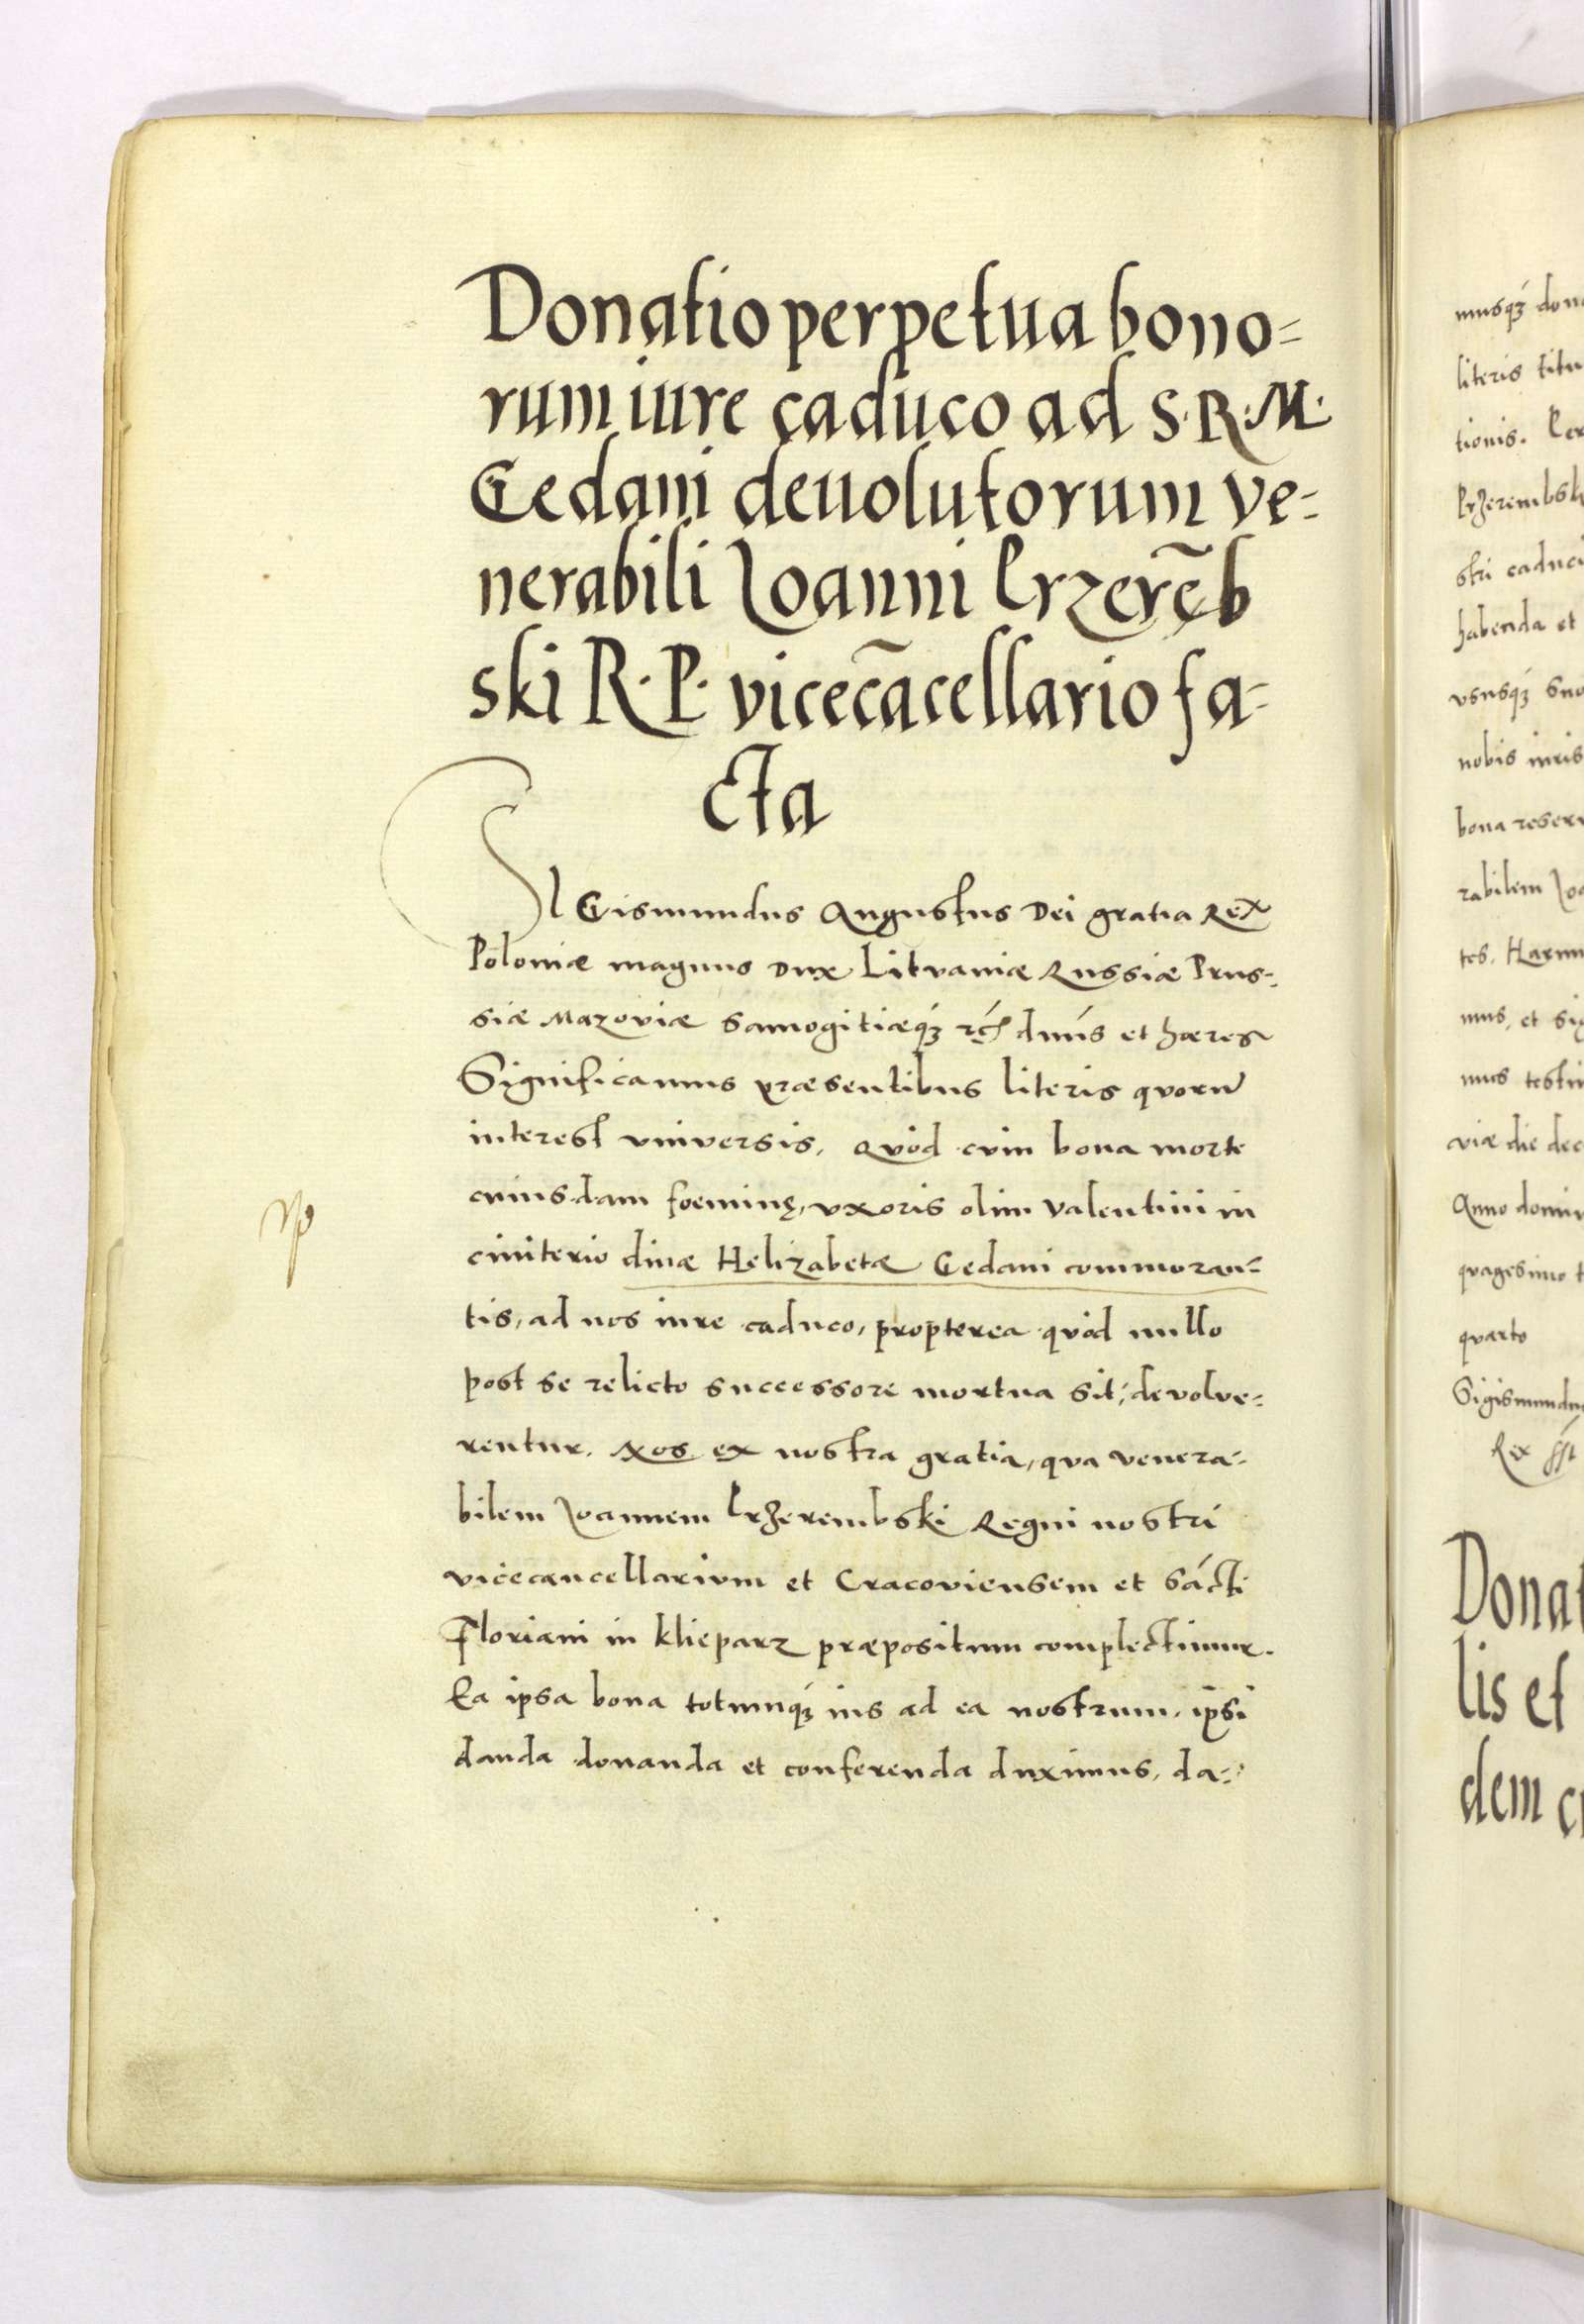 Donatio perpetua bono=
rum iure caduco ad S·R·M·
Gedani deuolutorum ve=
nerabili Ioanni Przerēb
ski R·P· vicecācellario fa=
cta
SIGismundus Augustus Dei gratia Rex
Poloniæ magnus Dux Litvaniæ Russiæ Prus=
siæ Mazoviæ Samogitiæq́ꝫ dn̄us et hæres
Significamus præsentibus literis quorū
interest vniversis, Qvòd cvm bona morte
cuiusdam foeminę, vxoris olim Valentini in
cimiterio diuæ Helizabetæ Gedani commoran=
tis, ad nos iure caduco, propterea quòd nullo
post se relicto successore mortua sit, devolve=
rentur. Nos ex nostra gratia, qua venera=
bilem Ioannem Przerembski Regni nostri
vicecancellarivm et Cracoviensem et Sācti
Floriani in Klieparz præpositum complectimur.
Ea ipsa bona totumq́ꝫ ius ad ea nostrum, ipsi
danda donanda et conferenda duximus, da=
musq́ꝫ don
literis titu
tionis. Per
Przerembsk
stri caduci
habenda et
vsusq́ꝫ suo
nobis iuris
bona reserv
rabilem Ioa
tes. Harum
mus, et sig
nus testim
viæ die dec
Anno domin
quagesimo t
quarto
Sigismundu
Rex
Donat
lis et
dem c